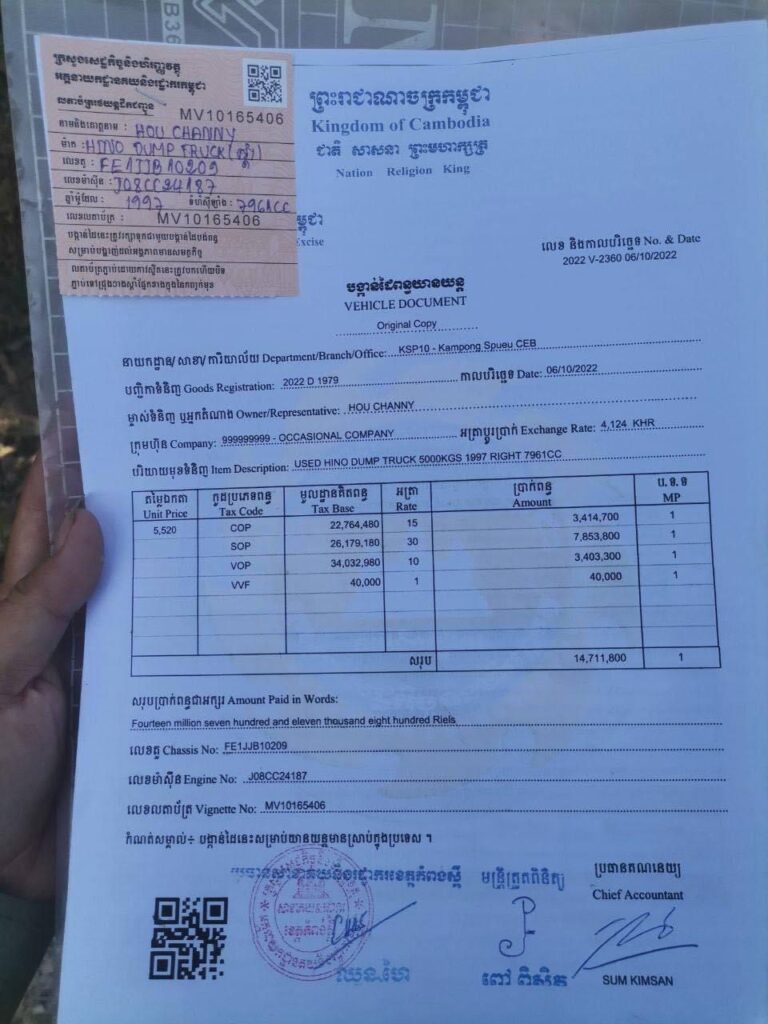 ក្រសួងសេដ្ឋកិច្ចនិងហិរញ្ញវត្ថុ
អគ្គនាយកដ្ឋានគយនិងរដ្ឋាករកម្ពុជា
លតាប័ត្រ
MV10165406
តាមនិងគោត្តនាម : HOU CHANNY
ម៉ាក : HINO DUMP TRUCK
លេខតួ : FE1JJB10209
លេខម៉ាស៊ីន : J08CC24187
ឆ្នាំម៉ូដែល : 1997 ទំហំស៊ីឡាំង : 7961CC
លេខលតាប័ត្រ : MV10165406
បង្កាន់ដៃនេះត្រូវរក្សាទុកជាមួយបង្កាន់ដៃបង់ពន្ធ
សម្រាប់បង្ហាញដល់អង្គភាពមានសមត្ថកិច្ច
ព្រះរាជាណាចក្រកម្ពុជា
Kingdom of Cambodia
ជាតិ សាសនា ព្រះមហាក្សត្រ
Nation Religion King
Excise
លេខ និងកាលបរិច្ឆេទ No. & Date
2022 V-2360 06/10/2022
បង្កាន់ដៃពន្ធយានយន្ត
VEHICLE DOCUMENT
Original Copy
នាយកដ្ឋាន/សាខា/ការិយាល័យ Department/Branch/Office: KSP10 - Kampong Spueu CEB
បញ្ជិកាទំនិញ Goods Registration: 2022 D 1979 កាលបរិច្ឆេទ Date: 06/10/2022
ម្ចាស់ទំនិញ ឬអ្នកតំណាង Owner/Representative: HOU CHANNY
ក្រុមហ៊ុន Company: 999999999 - OCCASIONAL COMPANY អត្រាប្តូរប្រាក់ Exchange Rate: 4,124 KHR
បរិយាយមុខទំនិញ Item Description: USED HINO DUMP TRUCK 5000KGS 1997 RIGHT 7961CC
តម្លៃឯកតា កូដប្រភេទពន្ធ មូលដ្ឋានគិតពន្ធ អត្រា ប្រាក់ពន្ធ ប.ទ.ទ
Unit Price Tax Code Tax Base Rate Amount MP
5,520 COP 22,764,480 15 3,414,700 1
SOP 26,179,180 30 7,853,800 1
VOP 34,032,980 10 3,403,300 1
VVF 40,000 1 40,000 1
សរុប 14,711,800 1
សរុបប្រាក់ពន្ធជាអក្សរ Amount Paid in Words:
Fourteen million seven hundred and eleven thousand eight hundred Riels
លេខតួ Chassis No: FE1JJB10209
លេខម៉ាស៊ីន Engine No: J08CC24187
លេខលតាប័ត្រ Vignette No: MV10165406
កំណត់សម្គាល់÷ បង្កាន់ដៃនេះសម្រាប់យានយន្តមានស្រាប់ក្នុងប្រទេស ។
មន្ត្រីត្រួតពិនិត្យ
ប្រធានគណនេយ្យ
Chief Accountant
ពៅ ពិសិត
SUM KIMSAN